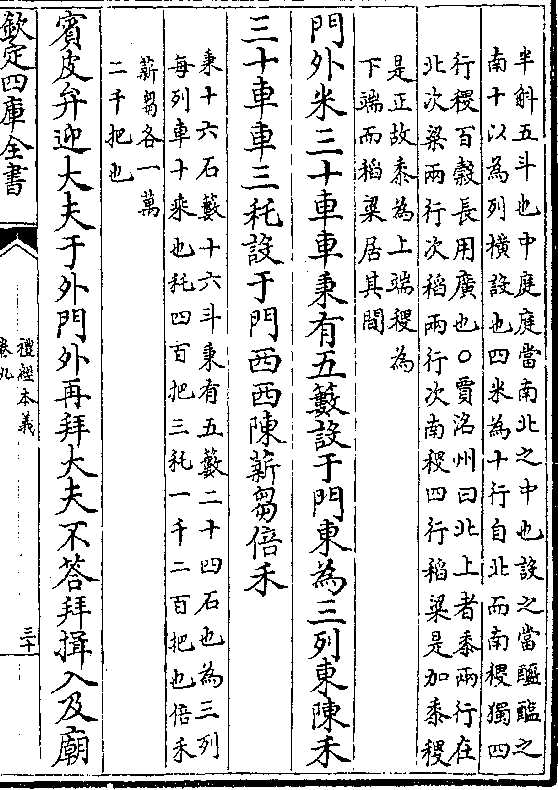 半斛五斗也中庭庭當南北之中也設之當醯醢之
南十以為列橫設也四米為十行自北而南稷獨四
行稷百穀長用廣也○賈洛州曰北上者黍兩行在
北次粱兩行次稻兩行次南稷四行稻粱是加黍稷
是正故黍為上端稷為
下端而稻粱居其間
門外米三十車車秉有五籔設于門東為三列東陳禾
三十車車三秅設于門西西陳薪芻倍禾
秉十六石籔十六斗秉有五籔二十四石也為三列
每列車十乘也秅四百把三秅一千二百把也倍禾
薪芻各一萬
二千把也
賓皮弁迎大夫于外門外再拜大夫不答拜揖入及廟
欽定四庫全書
禮經本義
卷九
三十